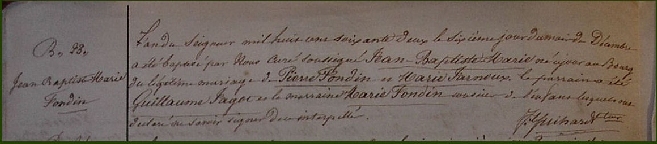 B. 93.
Jean Baptiste Marie
Fondin
L'an du Seigneur mil huit cent soixante deux le sixième jour du mois de Décembre
a été baptisé par Nous Curé soussigné Jean-Baptiste-Marie né ce jour au Bourg
du légitime mariage de Pierre Fondin et Marie Farnoux. Le parrain a été
Guillaume Jagot et la marraine Marie Fondin cousine de l'enfant lesquels ont
déclaré ne savoir signer de ce interpellé.